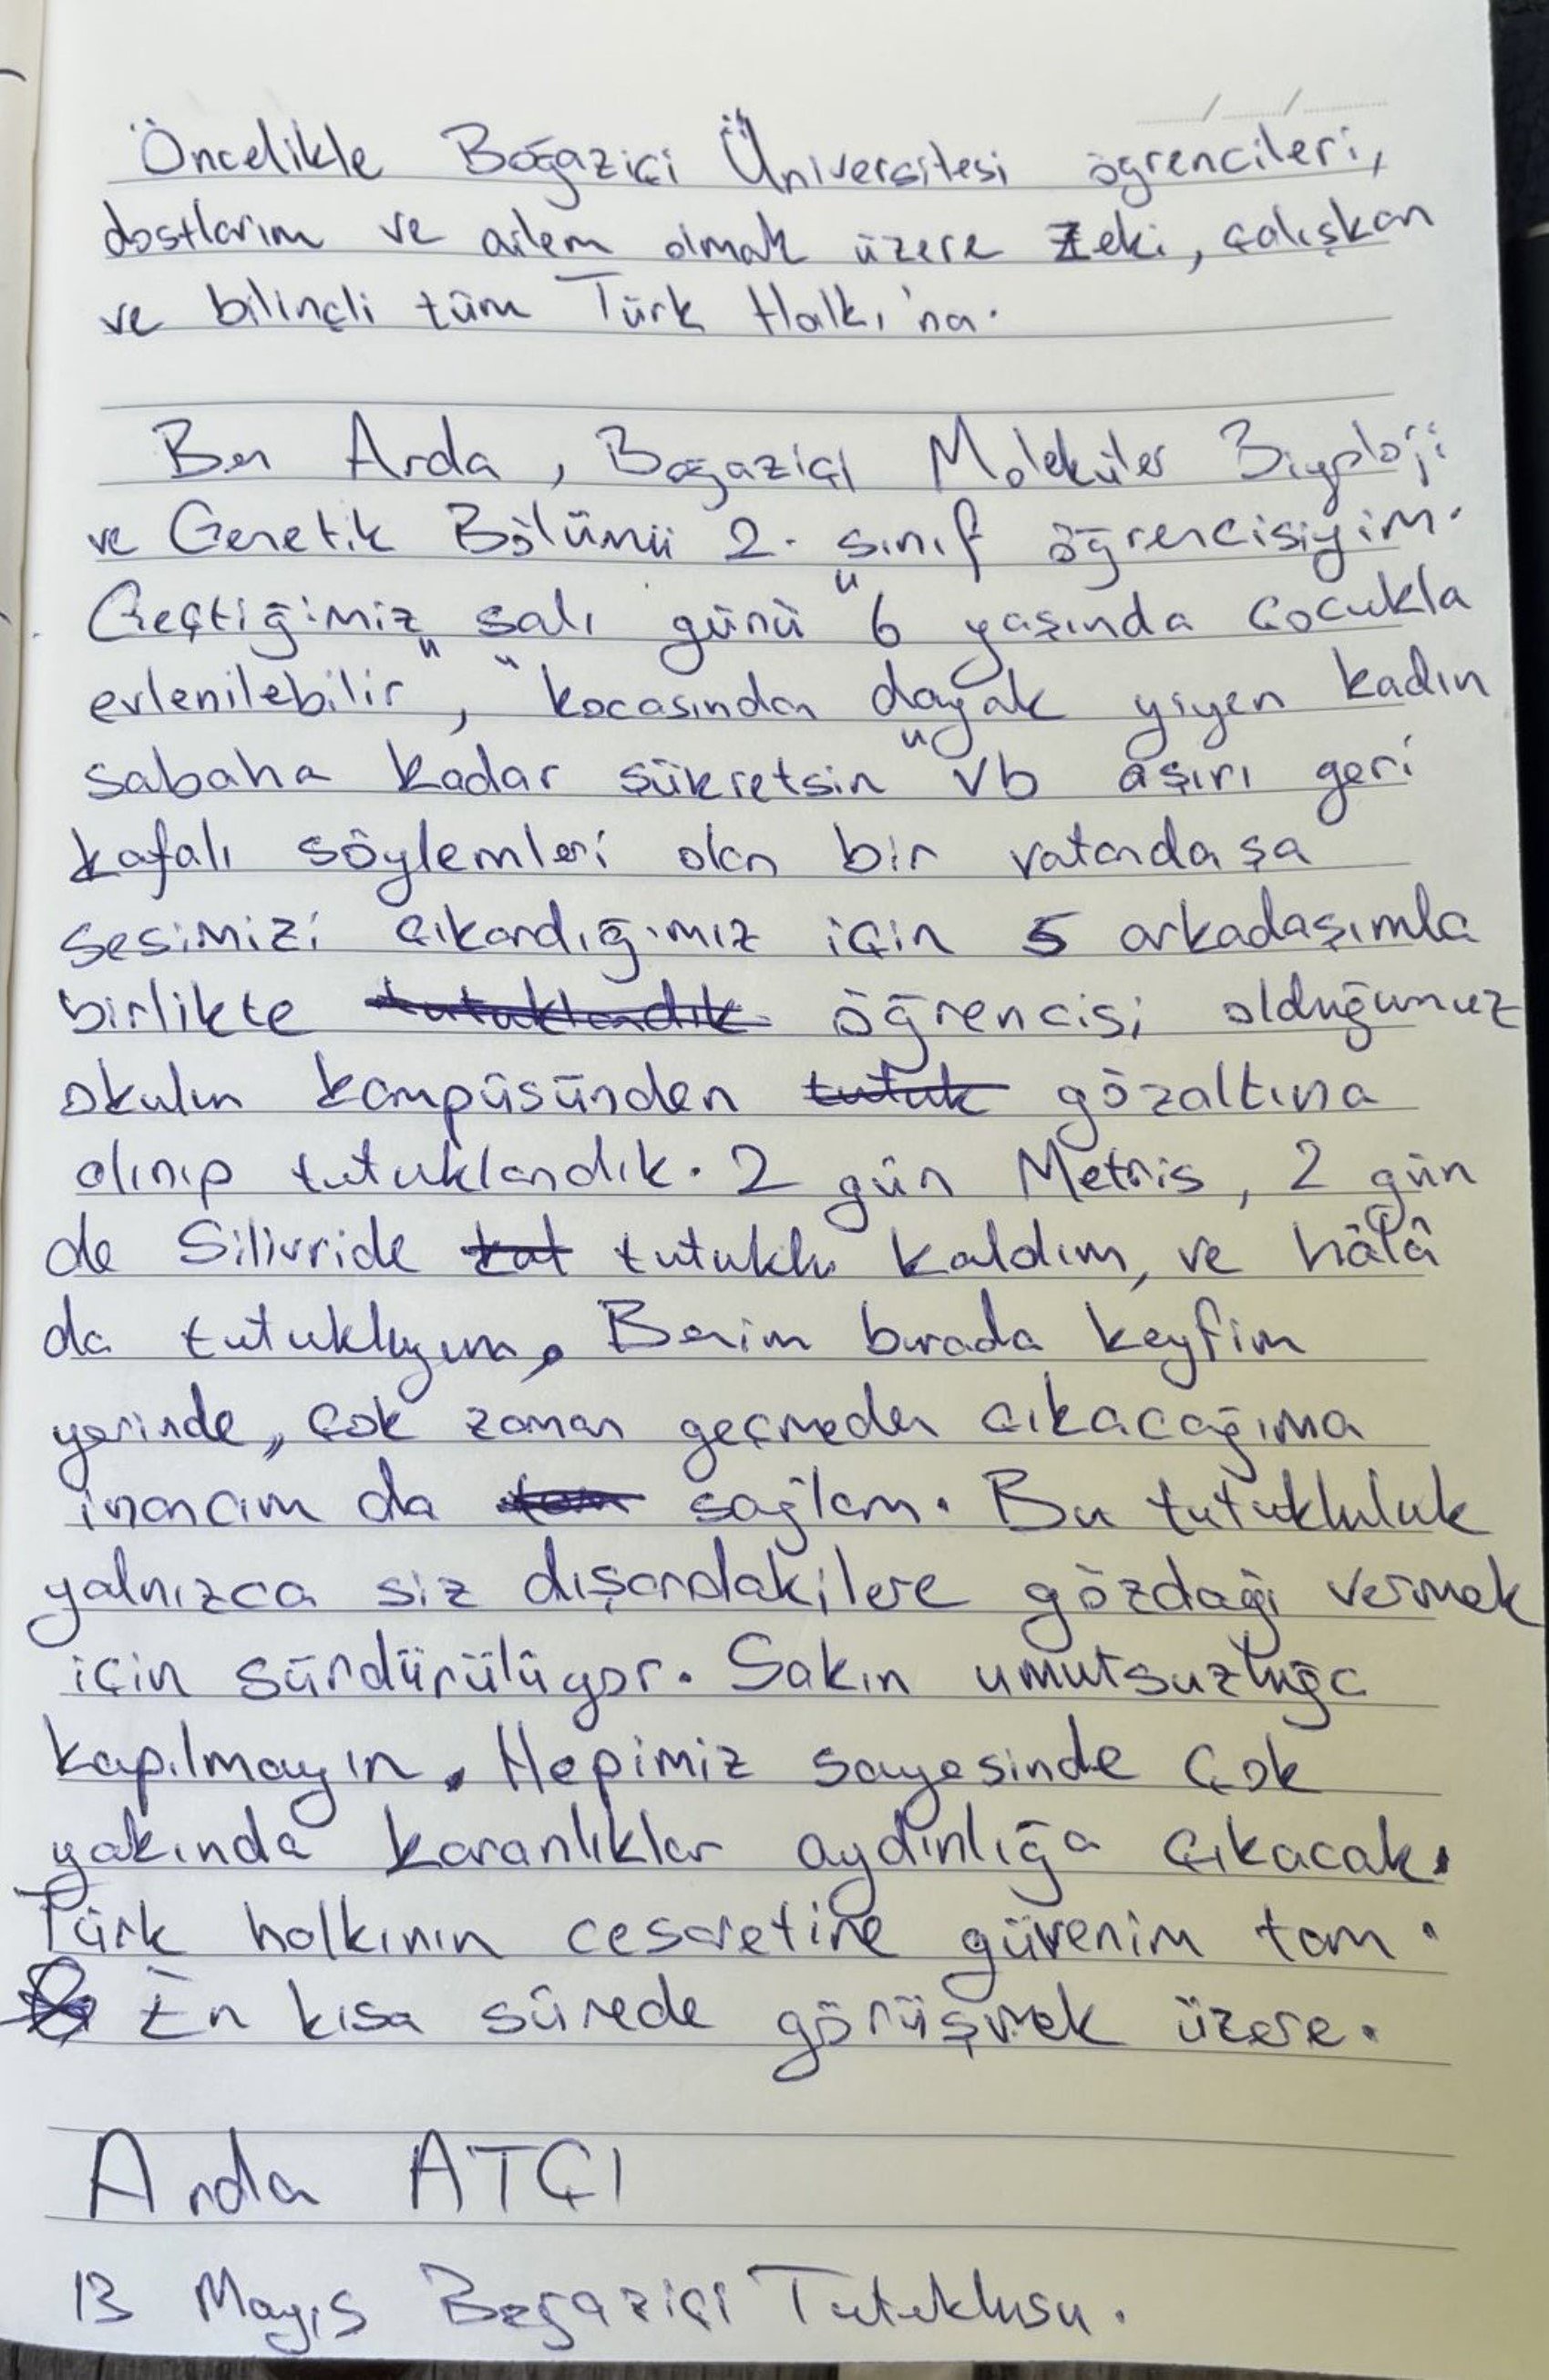 Öncelikle Boğaziçi Üniversitesi öğrencileri,
dostlarım ve ailem olmak üzere zeki, çalışkan
ve bilinçli tüm Türk Halkı'na.
Ben Arda, Boğaziçi Moleküler Biyoloji
ve Genetik Bölümü 2. sınıf öğrencisiyim.
Geçtiğimiz salı günü "6 yaşında çocukla
evlenilebilir", "kocasından dayak yiyen kadın
sabaha kadar şükretsin" vb aşırı geri
kafalı söylemleri olan bir vatandaşa
sesimizi çıkardığımız için 5 arkadaşımla
birlikte tutuklandık öğrencisi olduğumuz
okulun kampüsünden tutuk gözaltına
alınıp tutuklandık. 2 gün Metris, 2 gün
de Silivride kal tutuklu kaldım, ve hâlâ
da tutukluyum. Benim burada keyfim
yerinde, çok zaman geçmeden çıkacağıma
inancım da tam sağlam. Bu tutukluluk
yalnızca siz dışarıdakilere gözdağı vermek
için sürdürülüyor. Sakın umutsuzluğa
kapılmayın. Hepimiz sayesinde çok
yakında karanlıklar aydınlığa çıkacak.
Türk halkının cesaretine güvenim tam.
En kısa sürede görüşmek üzere.
Arda ATÇI
13 Mayıs Boğaziçi Tutuklusu.